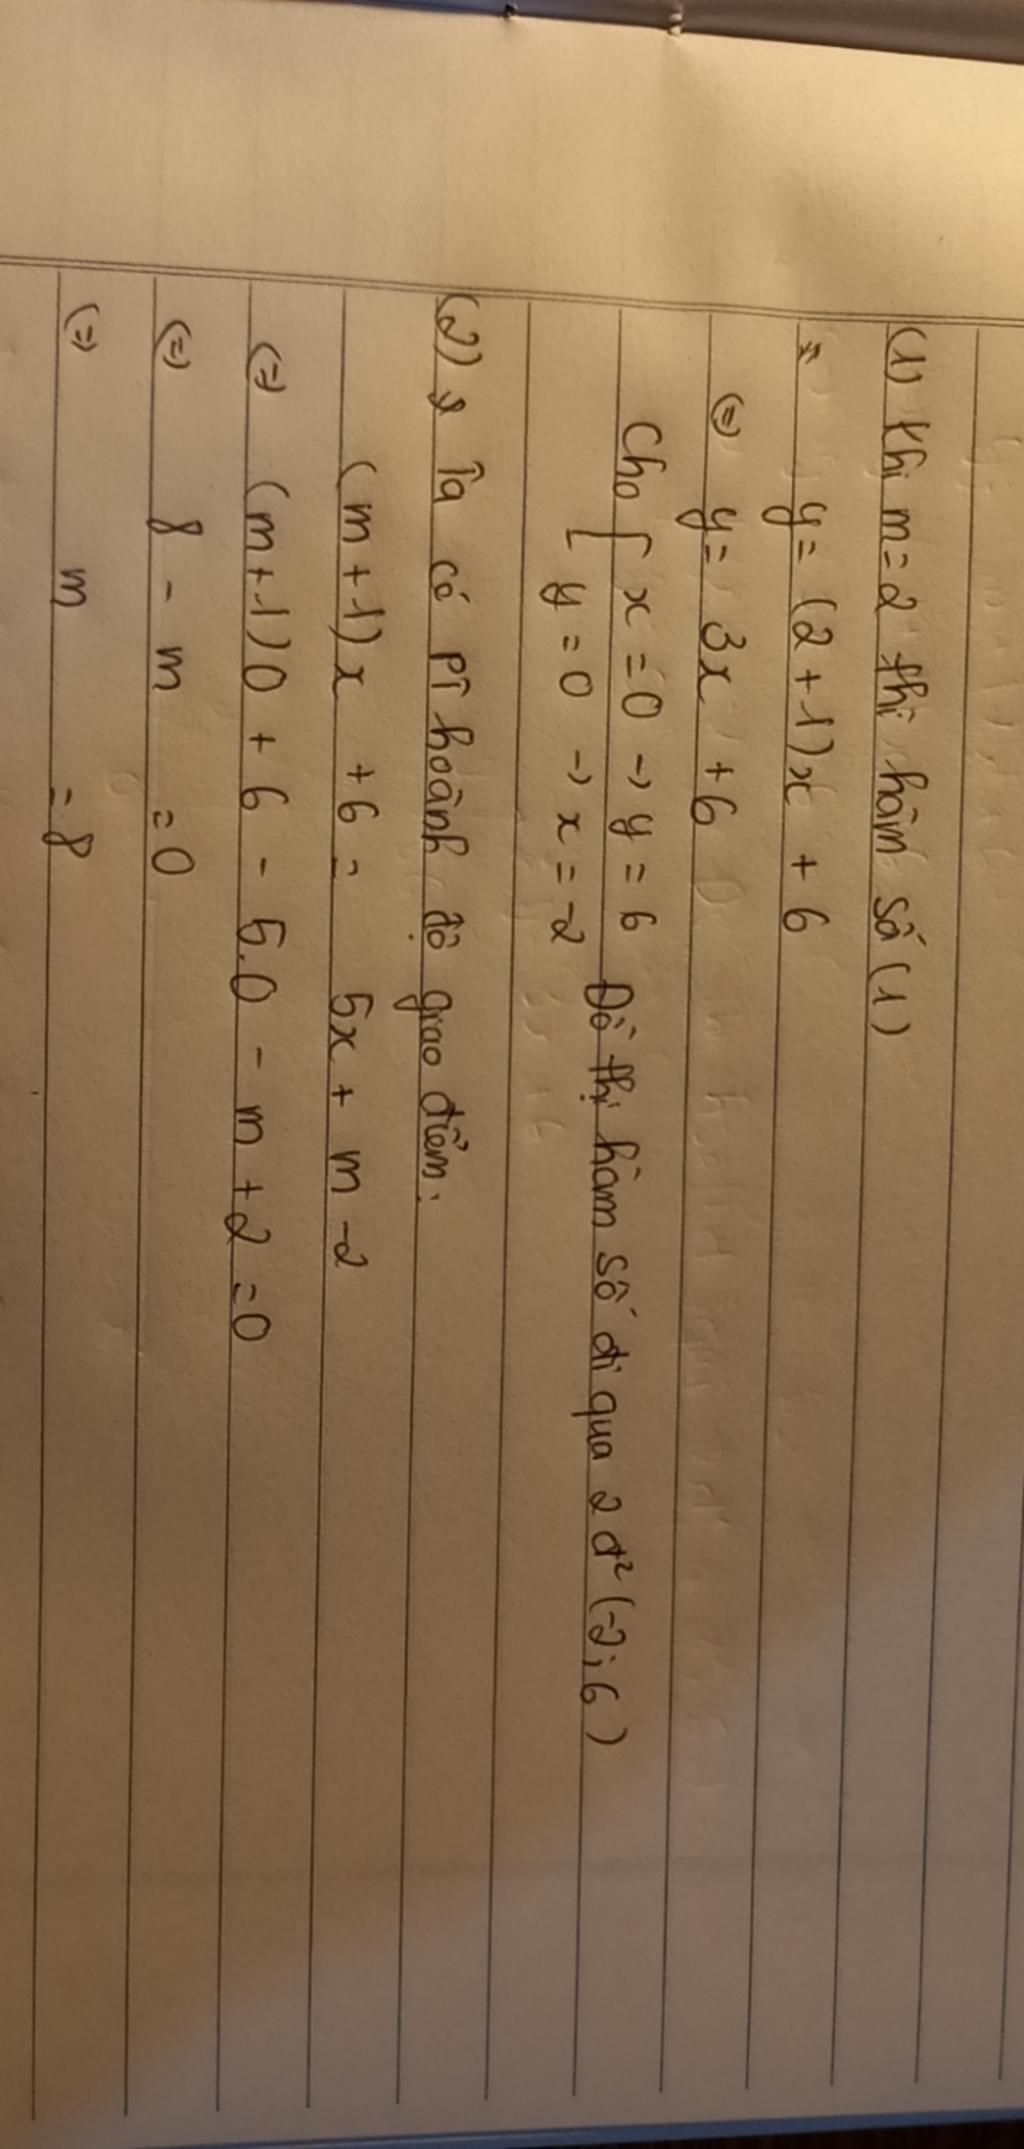 (1) Khi m=2 thì hàm số (1)
y= (2+1)x + 6
(=) y= 3x +6
Cho [ x=0 → y=6 Đồ thị hàm số đi qua 2 đ² (-2;6)
[ y=0 → x=-2
(2) Ta có PT hoành độ giao điểm:
(m+1)x +6 = 5x + m -2
(=) (m+1)0 + 6 - 5.0 - m +2 =0
(=) 8 - m =0
(=) m =8